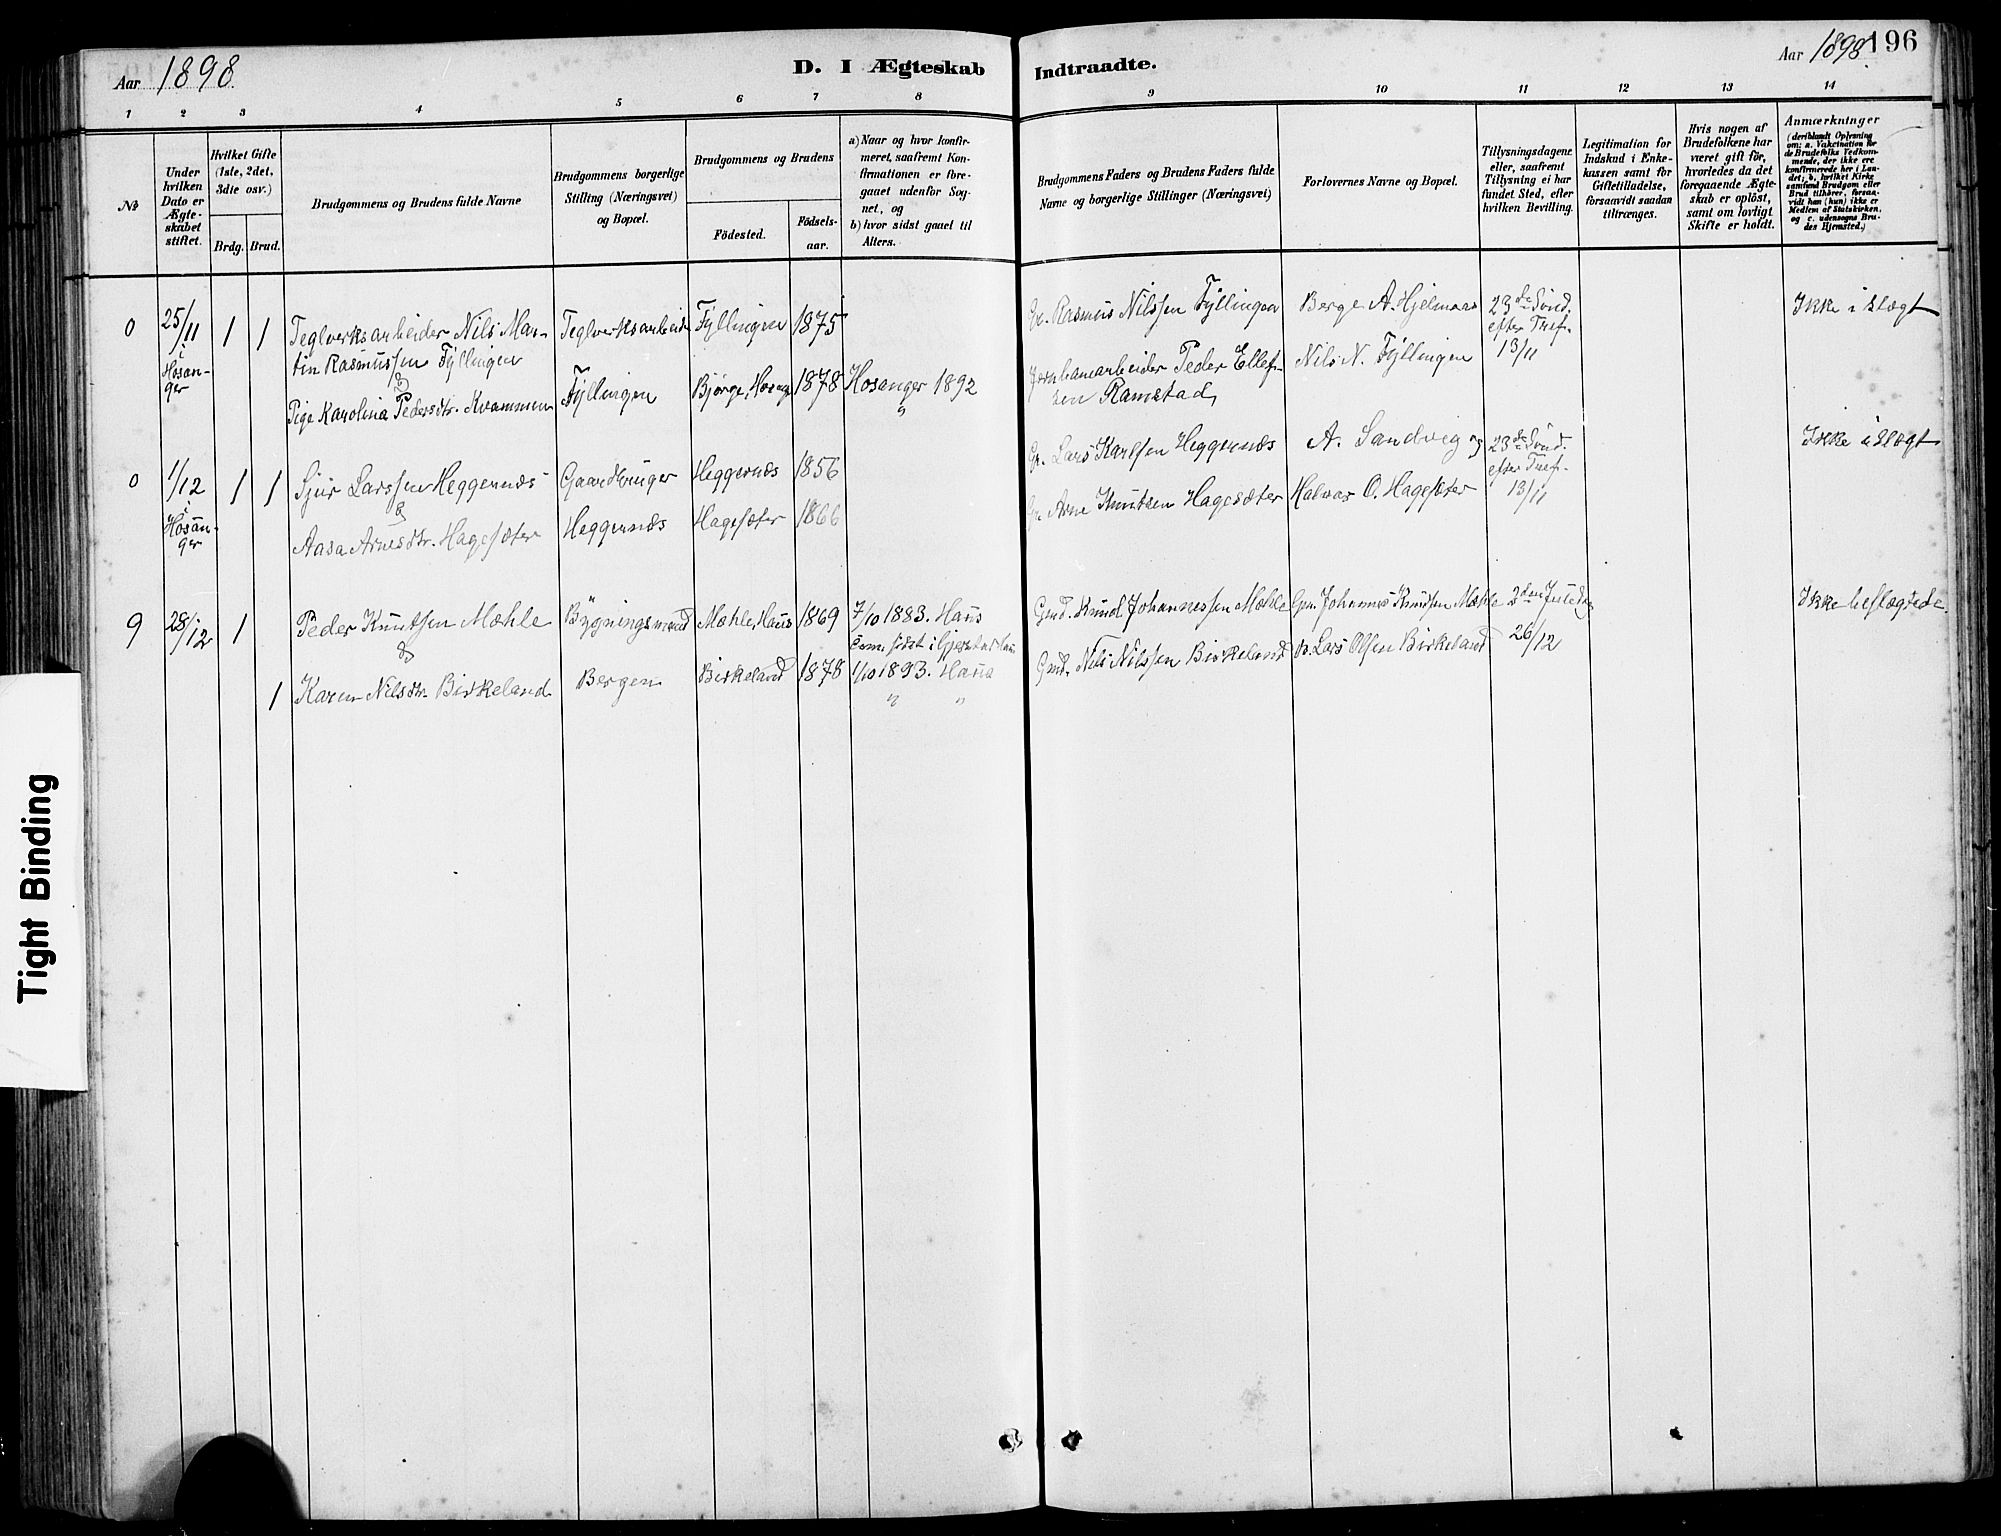 Aar 1898
D. I Ægteskab
Indtraadte.
Aar 1898.
196
1
2
3
4
5
6
7
8
9
10
11
12
13
14
№
Under hvilken Dato er Ægteskabet stiftet.
Hvilket Gifte (1ste, 2det, 3die osv.)
Brdg.
Brud.
Brudgommens og Brudens fulde Navne
Brudgommens borgerlige Stilling (Næringsvei) og Bopæl.
Brudgommens og Brudens
Fødested.
Fødselsaar.
a) Naar og hvor konfirmeret, saafremt Konfirmationen er foregaaet udenfor Sognet, og
b) hvor sidst gaaet til Alters.
Brudgommens Faders og Brudens Faders fulde Navne og borgerlige Stillinger (Næringsvei)
Forlovernes Navne og Bopæl.
Tillysningsdagene eller, saafremt Tillysning ei har fundet Sted, efter hvilken Bevilling.
Legitimation for Indskud i Enkekassen samt for Giftetilladelse, forsaavidt saadan tiltrænges.
Hvis nogen af Brudefolkene har været gift før, hvorledes da det foregaaende Ægteskab er opløst, samt om lovligt Skifte er holdt.
Anmærkninger
(deriblandt Oplysning om: a. Vakcination for de Brudefolks Vedkommende, der ikke ere konfirmerede her i Landet; b. hvilket Kirkesamfund Brudgom eller Brud tilhører, forsaavidt han (hun) ikke er Medlem af Statskirken, og c. udensogns Brudes Hjemsted.)
0
25/11 i Hosanger
1
1
Teglverksarbeider Nils Martin Rasmussen Fyllingen
&
Pige Karolina Pedersdtr. Kvammen
Teglverksarbeid
Fyllingen
Fyllingen
1875
Bjørge, Hosang
1878
Hosanger 1892
"
Gr. Rasmus Nilssen Fyllingen
Jernbanarbeider Peder Ellefsen Ramstad
Berge A. Hjelmaas
Nils N. Fyllingen
23de Sønd. efter Tref. 13/11
Ikke i Slægt
0
1/12 i Hosanger
1
1
Sjur Larssen Heggernæs
&
Aasa Arnesdtr. Hagesæter
Gaardbruger
Heggernæs
Heggernæs
1856
Hagesæter
1866
Gr. Lars Karlsen Heggernæs
Gr. Arne Knutsen Hagesæter
A. Sandvig og
Halvar O. Hagesæter
23de Sønd. efter Tref. 13/11
Ikke i Slægt
9
28/12
1
Peder Knutsen Mæhle
&
1
Karen Nilsdtr. Birkeland
Bygningsmand
Bergen
Mæhle, Haus
1869
7/10 1883. Haus
Com. sidst i Gjerstad Haus
Birkeland
1878
1/10 1893. Haus
" "
Gmd. Knud Johannessen Mæhle
Gmd. Nils Nilssen Birkeland
Gm. Johannes Knudsen Mæhle
Lars Olsen Birkeland
2den Juledag
26/12
Ikke beslægtede.
Tight Binding